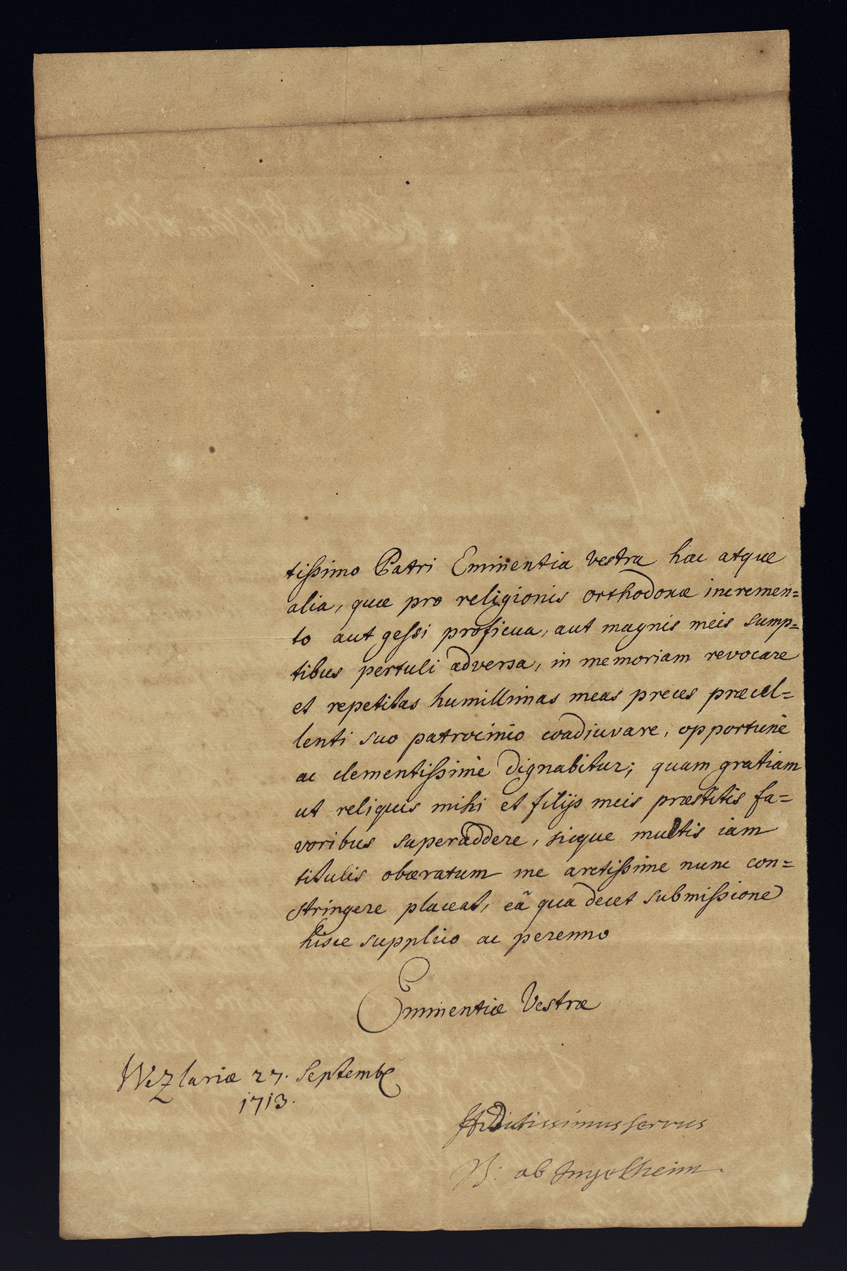 tissimo Patri Eminentia Vestra hæc atque
alia, quæ pro religionis orthodoxæ incremen=
to aut gessi proficua, aut magnis meis sump=
tibus pertuli adversa, in memoriam revocare
et repetitas humillimas meas preces præcel=
lenti suo patrocinio coadiuvare, opportunè
ac clementissimè dignabitur; quam gratiam
ut reliquis mihi et filijs meis præstitis fa=
voribus superaddere, sicque multis iam
titulis obæratum me arctissime nunc con=
stringere placeat, eâ qua decet submissione
hisce supplico ac perenno
Eminentiæ Vestræ
Wezlariæ 27. Septemb
1713.
Addictissimus servus
ab Ingelheim